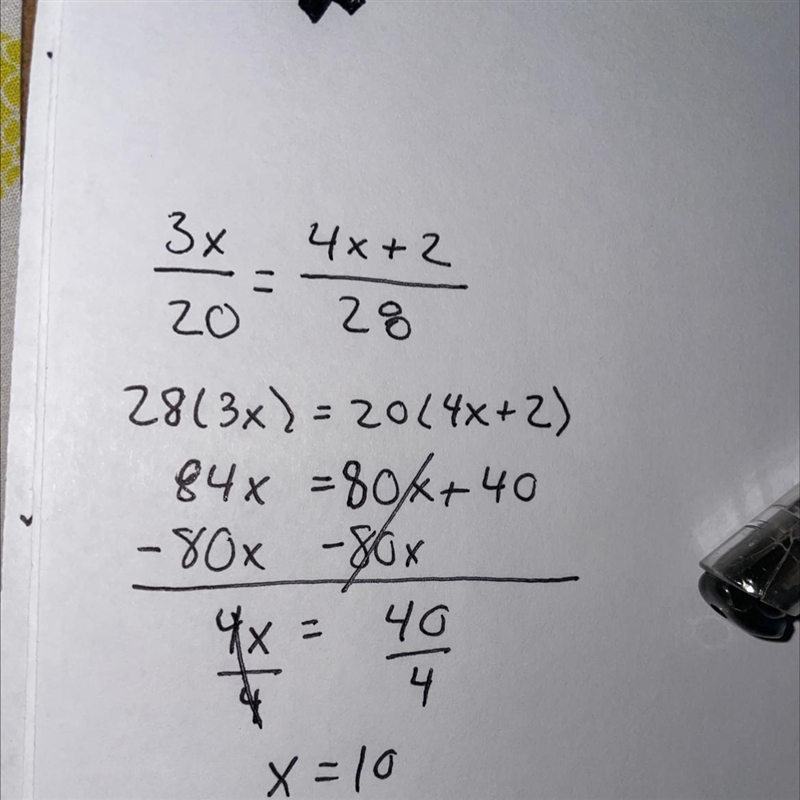 3x/20 = 4x+2/28
28(3x) = 20(4x+2)
84x = 80x + 40
-80x -80x
4x/4 = 40/4
x = 10